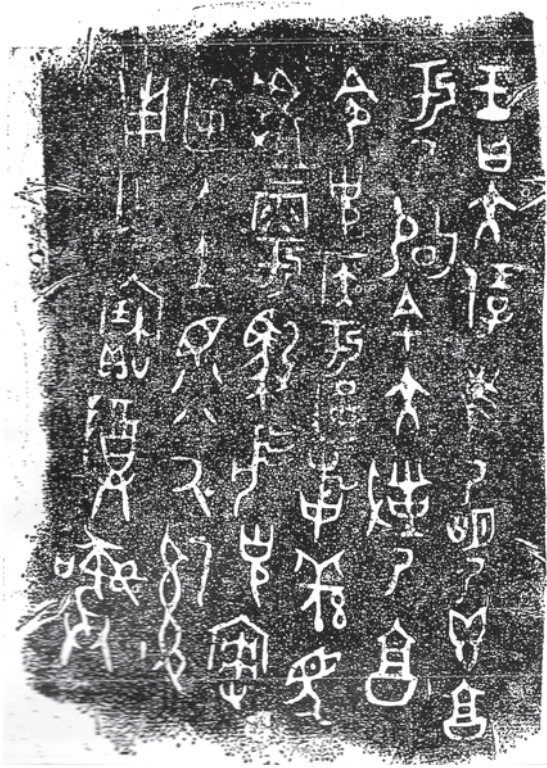 王曰大保隹乃明乃鬯享
于乃辟余大對乃享
令克侯于匽事羌馬
雩馭微克
匽入土眔又𤔲
用乍寶尊彝